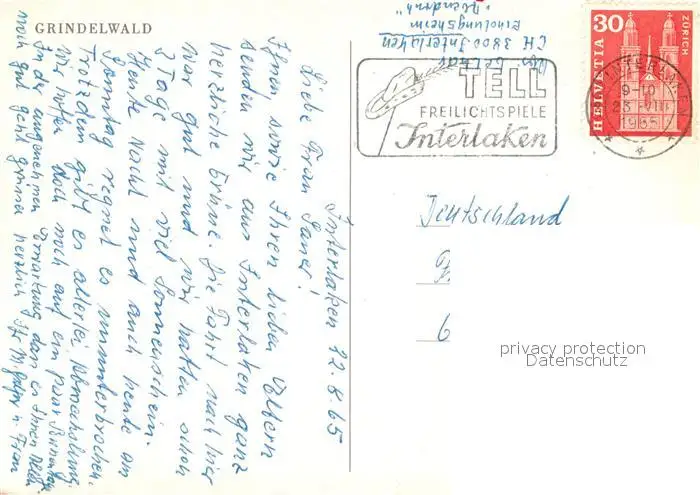 GRINDELWALD
Interlaken 22.8.65
Liebe Frau Sauer!
Ihnen sowie Ihren lieben Eltern
senden wir aus Interlaken ganz
herzliche Grüsse. Die Fahrt nach hier
war gut und wir hatten schon
2 Tage mit viel Sonnenschein.
Heute Nacht und auch heute am
Sonntag regnet es ununterbrochen.
Trotzdem gibt es allerlei Abwechslung.
Wir hoffen doch noch auf ein paar Sonnentage
In der angenehmen Erwartung, dass es Ihnen allen
noch gut geht grüsst herzlich Ihr u. Frau
Erholungsheim
CH 3800 Interlaken
TELL
FREILICHTSPIELE
Interlaken
INTERLAKEN
9-10
23.VIII
1965
30
HELVETIA
ZÜRICH
Deutschland
privacy protection
Datenschutz